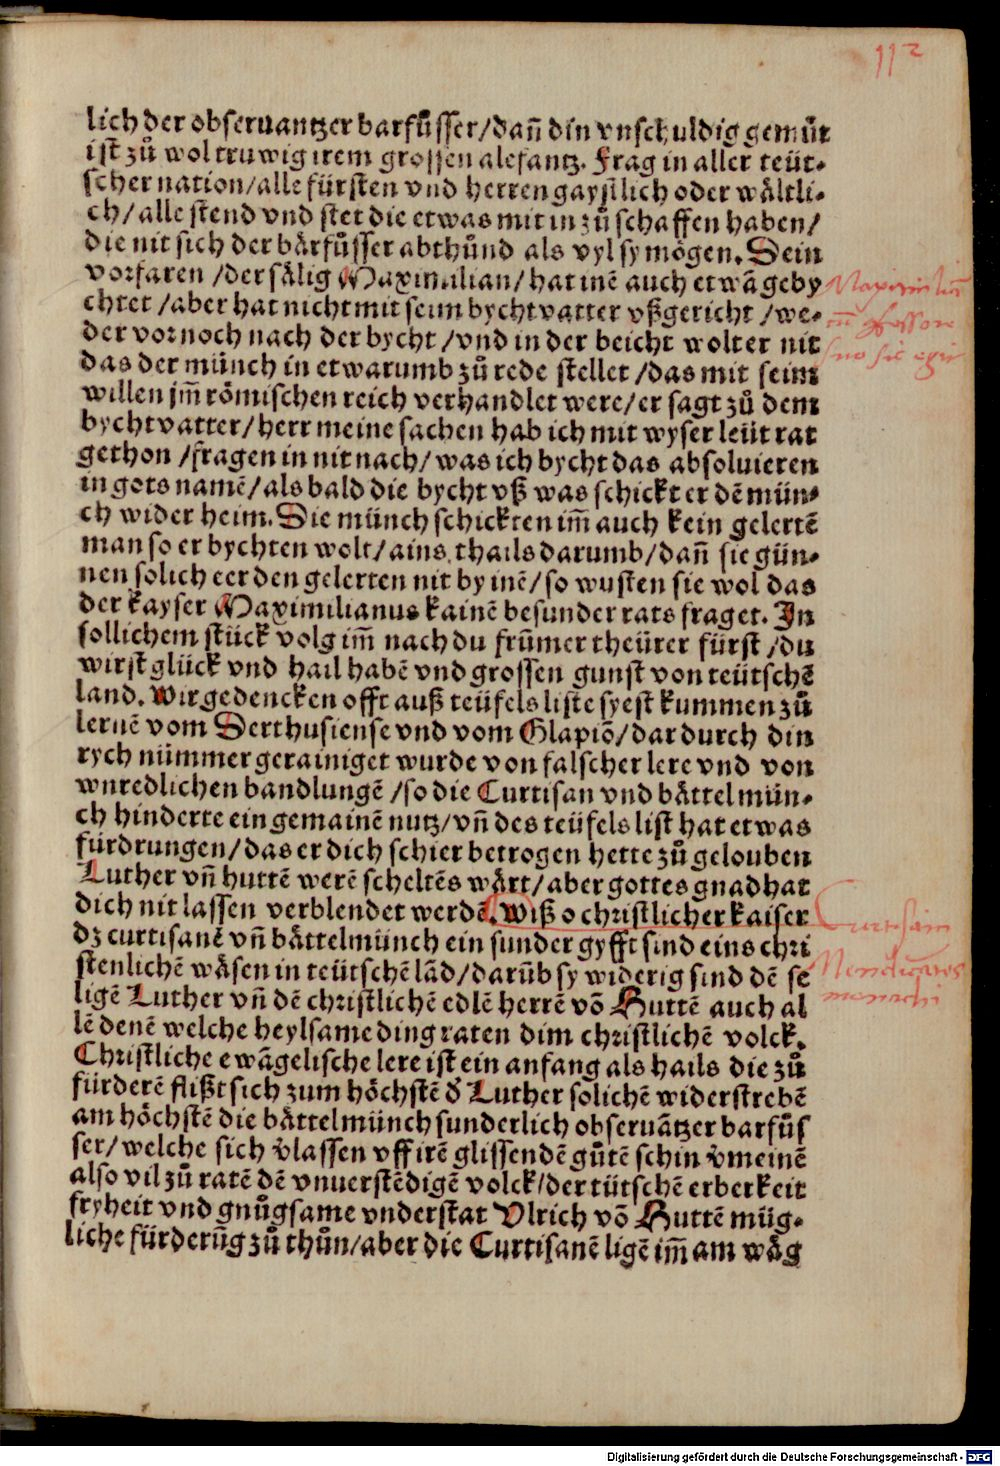 112
lich der obseruantzer barfůsser/dañ din vnschuldig gemůt
ist zů wol truwig irem grossen alefantz. Frag in aller teüt-
scher nation/alle fürsten vnd herren gaystlich oder wältli-
ch/alle stend vnd stet die etwas mit in zů schaffen haben/
die nit sich der bärfůsser abthůnd als vyl sy mögen. Sein
vorfaren /der sälig Maximilian/hat inē auch etwā geby
chtet /aber hat nicht mit seim bychtvatter vßgericht /we-
der vor noch nach der bycht /vnd in der beicht wolt er nit
das der münch in etwarumb zů rede stellet /das mit seim
willen jm̃ römischen reich verhandlet were/er sagt zů dem
bychtvatter/herr meine sachen hab ich mit wyser leüt rat
gethon /fragen in nit nach/was ich bycht das absoluieren
in gots namē/als bald die bycht vß was schickt er dē mün-
ch wider heim. Die münch schickten im̃ auch kein gelertē
man so er bychten wolt/ains thails darumb/dañ sie gün-
nen solich eer den gelerten nit by inē/so wusten sie wol das
der kayser Maximilianus kainē besunder rats fraget. In
sollichem stück volg im̃ nach du frůmer theürer fürst /du
wirst glück vnd hail habē vnd grossen gunst von teütschē
land. Wir gedencken offt auß teüfels liste syest kummen zů
lernē vom Derthusiense vnd vom Glapiō/dar durch din
rych nümmer gerainiget wurde von falscher lere vnd von
wnredlichen handlungē /so die Curtisan vnd bättel mün-
ch hinderte ein gemainē nutz/vñ des teüfels list hat etwas
fürdrungen/das er dich schier betrogen hette zů gelouben
Luther vñ huttē werē scheltēs wärt/aber gottes gnad hat
dich nit lassen verblendet werdē. Wiß o christlicher kaiser
dz curtisanē vñ bättelmünch ein sunder gyfft sind eins chri
stenlichē wäsen in teütschē lād/darūb sy widerig sind dē se
ligē Luther vñ dē christlichē edlē herrē vō Huttē auch al
lē denē welche heylsame ding raten dim christlichē volck.
Christliche ewāgelische lere ist ein anfang als hails die zů
fürderē flißt sich zum höchstē ď Luther solichē widerstrebē
am höchstē die bättelmünch sunderlich obseruātzer barfůs
ser/welche sich v̊lassen vff irē glissendē gůtē schin v̊meinē
also vil zů ratē dē vnuerstēdigē volck/der tütschē erberkeit
fryheit vnd gnůgsame vnderstat Vlrich vō Huttē müg-
liche fürderūg zů thůn/aber die Curtisanē ligē im̃ am wäg
Curtisani
Mendicantes
monachi
Digitalisierung gefördert durch die Deutsche Forschungsgemeinschaft - DFG